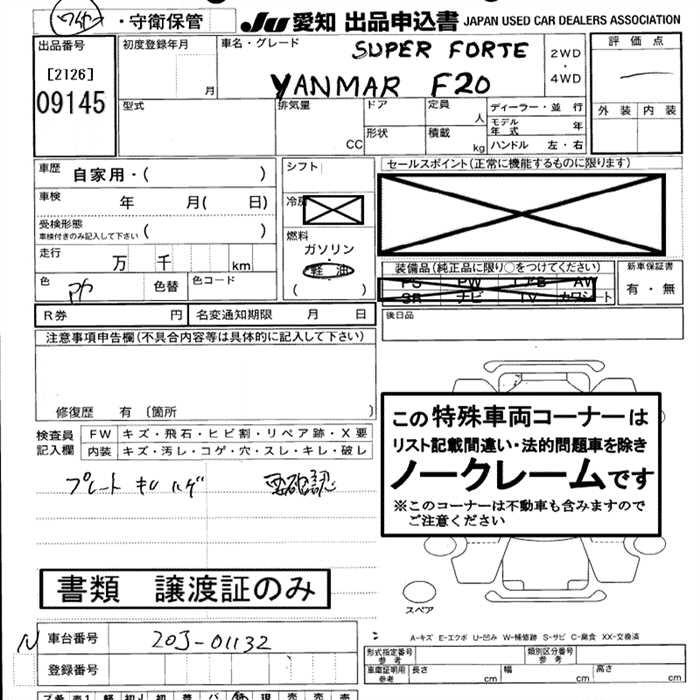 ・守衛保管 JU 愛知 出品申込書 JAPAN USED CAR DEALERS ASSOCIATION
出品番号
[2126]
09145
初度登録年月
月
車名・グレード
SUPER FORTE
YANMAR F20
2WD
・
4WD
評価点
外装 内装
型式
排気量
CC
ドア
形状
定員
人
積載
kg
ディーラー・並行
モデル年式 年
ハンドル 左・右
車歴 自家用・( )
車検 年 月( 日)
受検形態
車検付きのみ記入して下さい ( )
走行 万 千 km
色 色替 色コード
R券 円 名変通知期限 月 日
シフト
冷房
燃料
ガソリン
軽油
( )
セールスポイント(正常に機能するものに限ります)
装備品(純正品に限り○をつけてください)
PS PW エアB AW
SR ナビ TV カワシート
新車保証書
有・無
後日品
注意事項申告欄(不具合内容等は具体的に記入して下さい)
修復歴 有 〔箇所 〕
検査員記入欄
FW キズ・飛石・ヒビ割・リペア跡・X要
内装 キズ・汚レ・コゲ・穴・スレ・キレ・破レ
プレート キレ ハゲ 要確認
この特殊車両コーナーは
リスト記載間違い・法的問題車を除き
ノークレームです
※このコーナーは不動車も含みますので
ご注意ください
スペア
書類 譲渡証のみ
A-キズ E-エクボ U-凹み W-補修跡 S-サビ C-腐食 XX-交換済
N 車台番号 20J-01132
登録番号
形式指定番号
参考
類別区分番号
参考
車庫証明用
参考
長さ cm 幅 cm 高さ cm